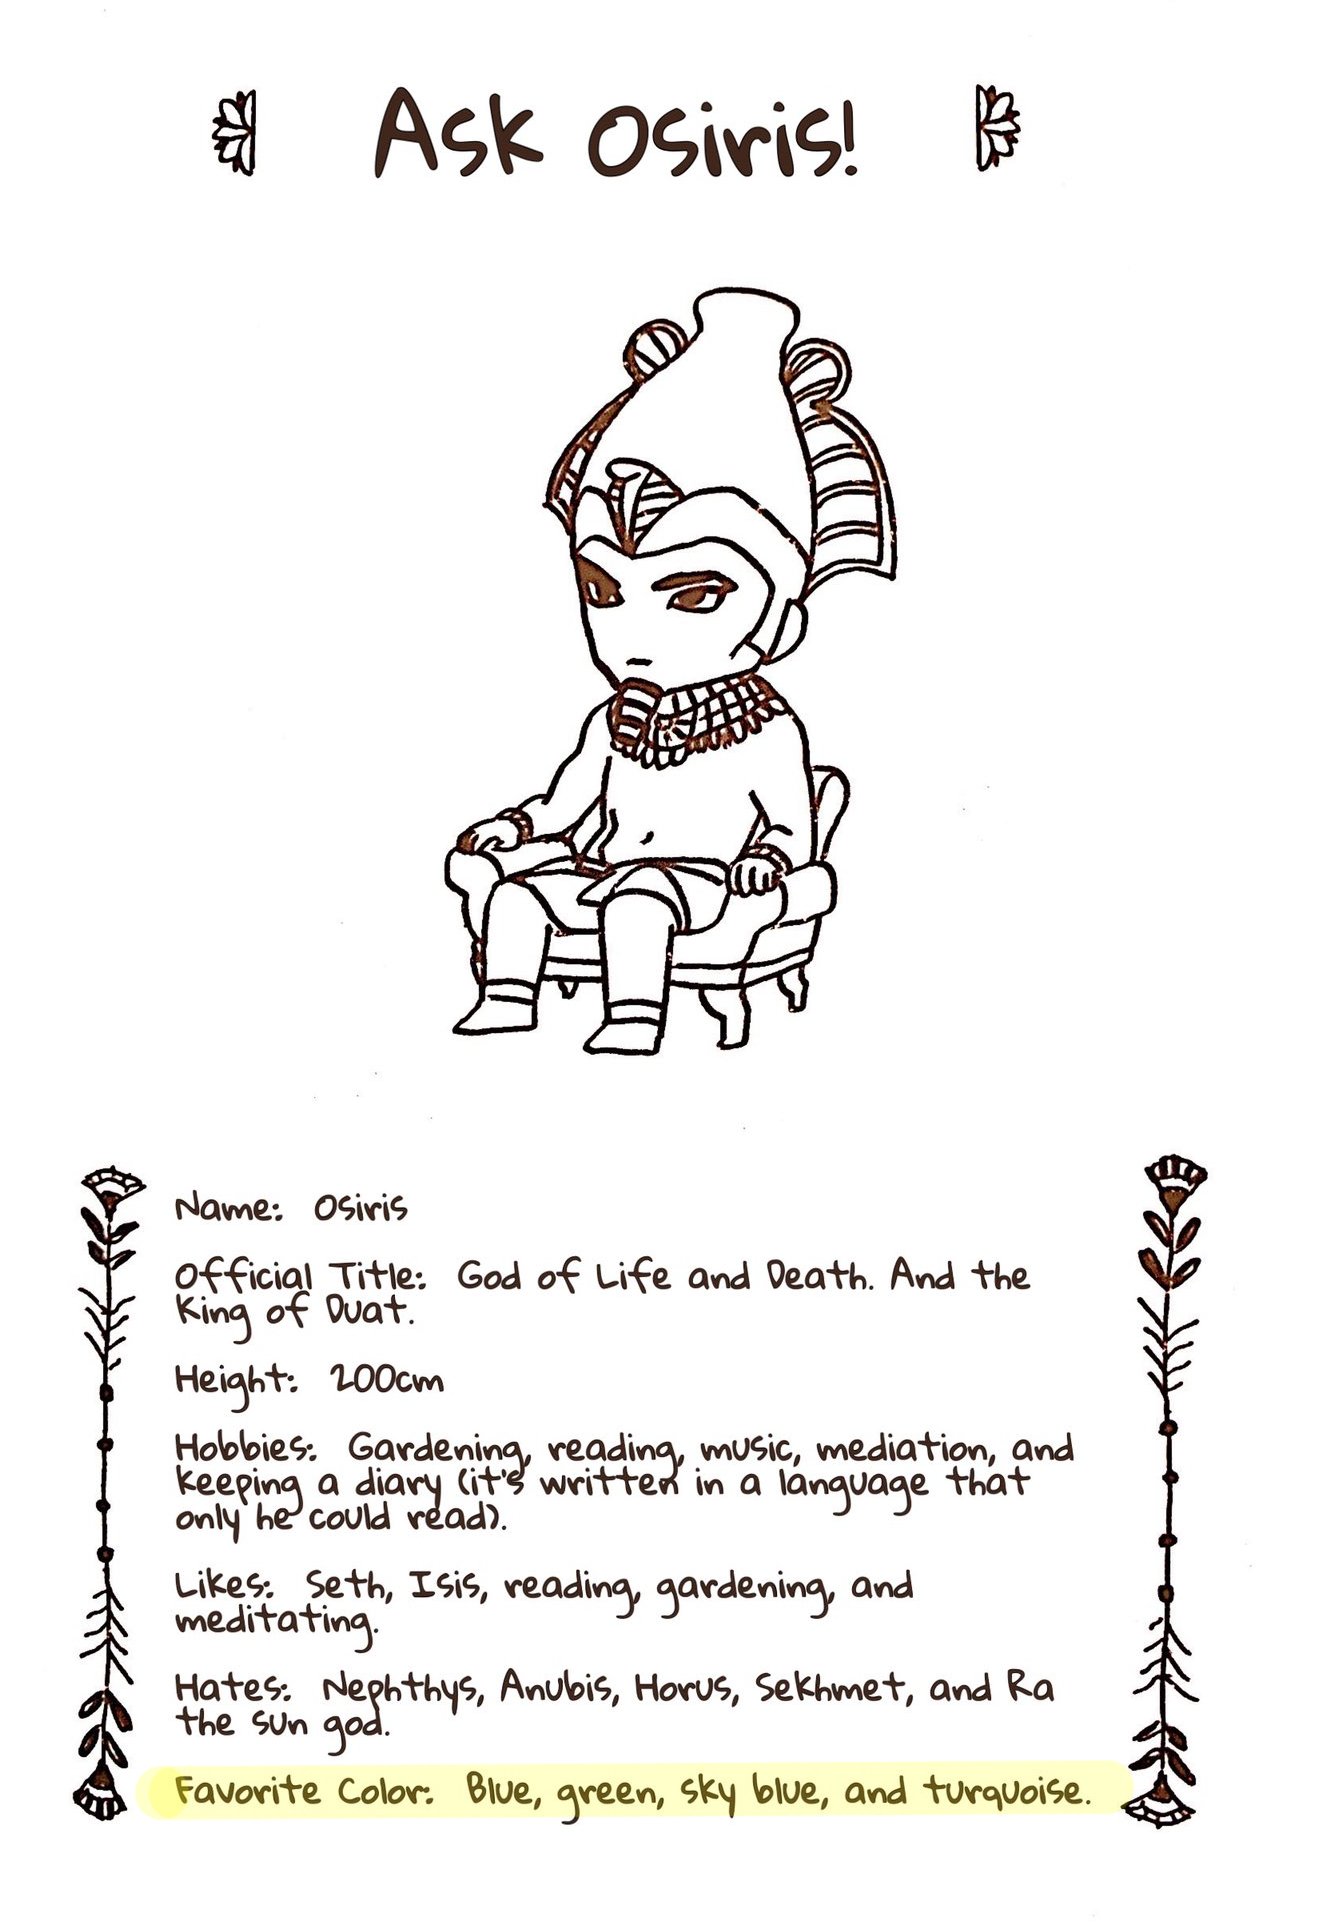 Ask Osiris!
Name: Osiris
Official Title: God of Life and Death. And the
King of Duat.
Height: 200cm
Hobbies: Gardening, reading, music, mediation, and
keeping a diary (it's written in a language that
only he could read).
Likes: Seth, Isis, reading, gardening, and
meditating.
Hates: Nephthys, Anubis, Horus, Sekhmet, and Ra
the sun god.
Favorite Color: Blue, green, sky blue, and turquoise.